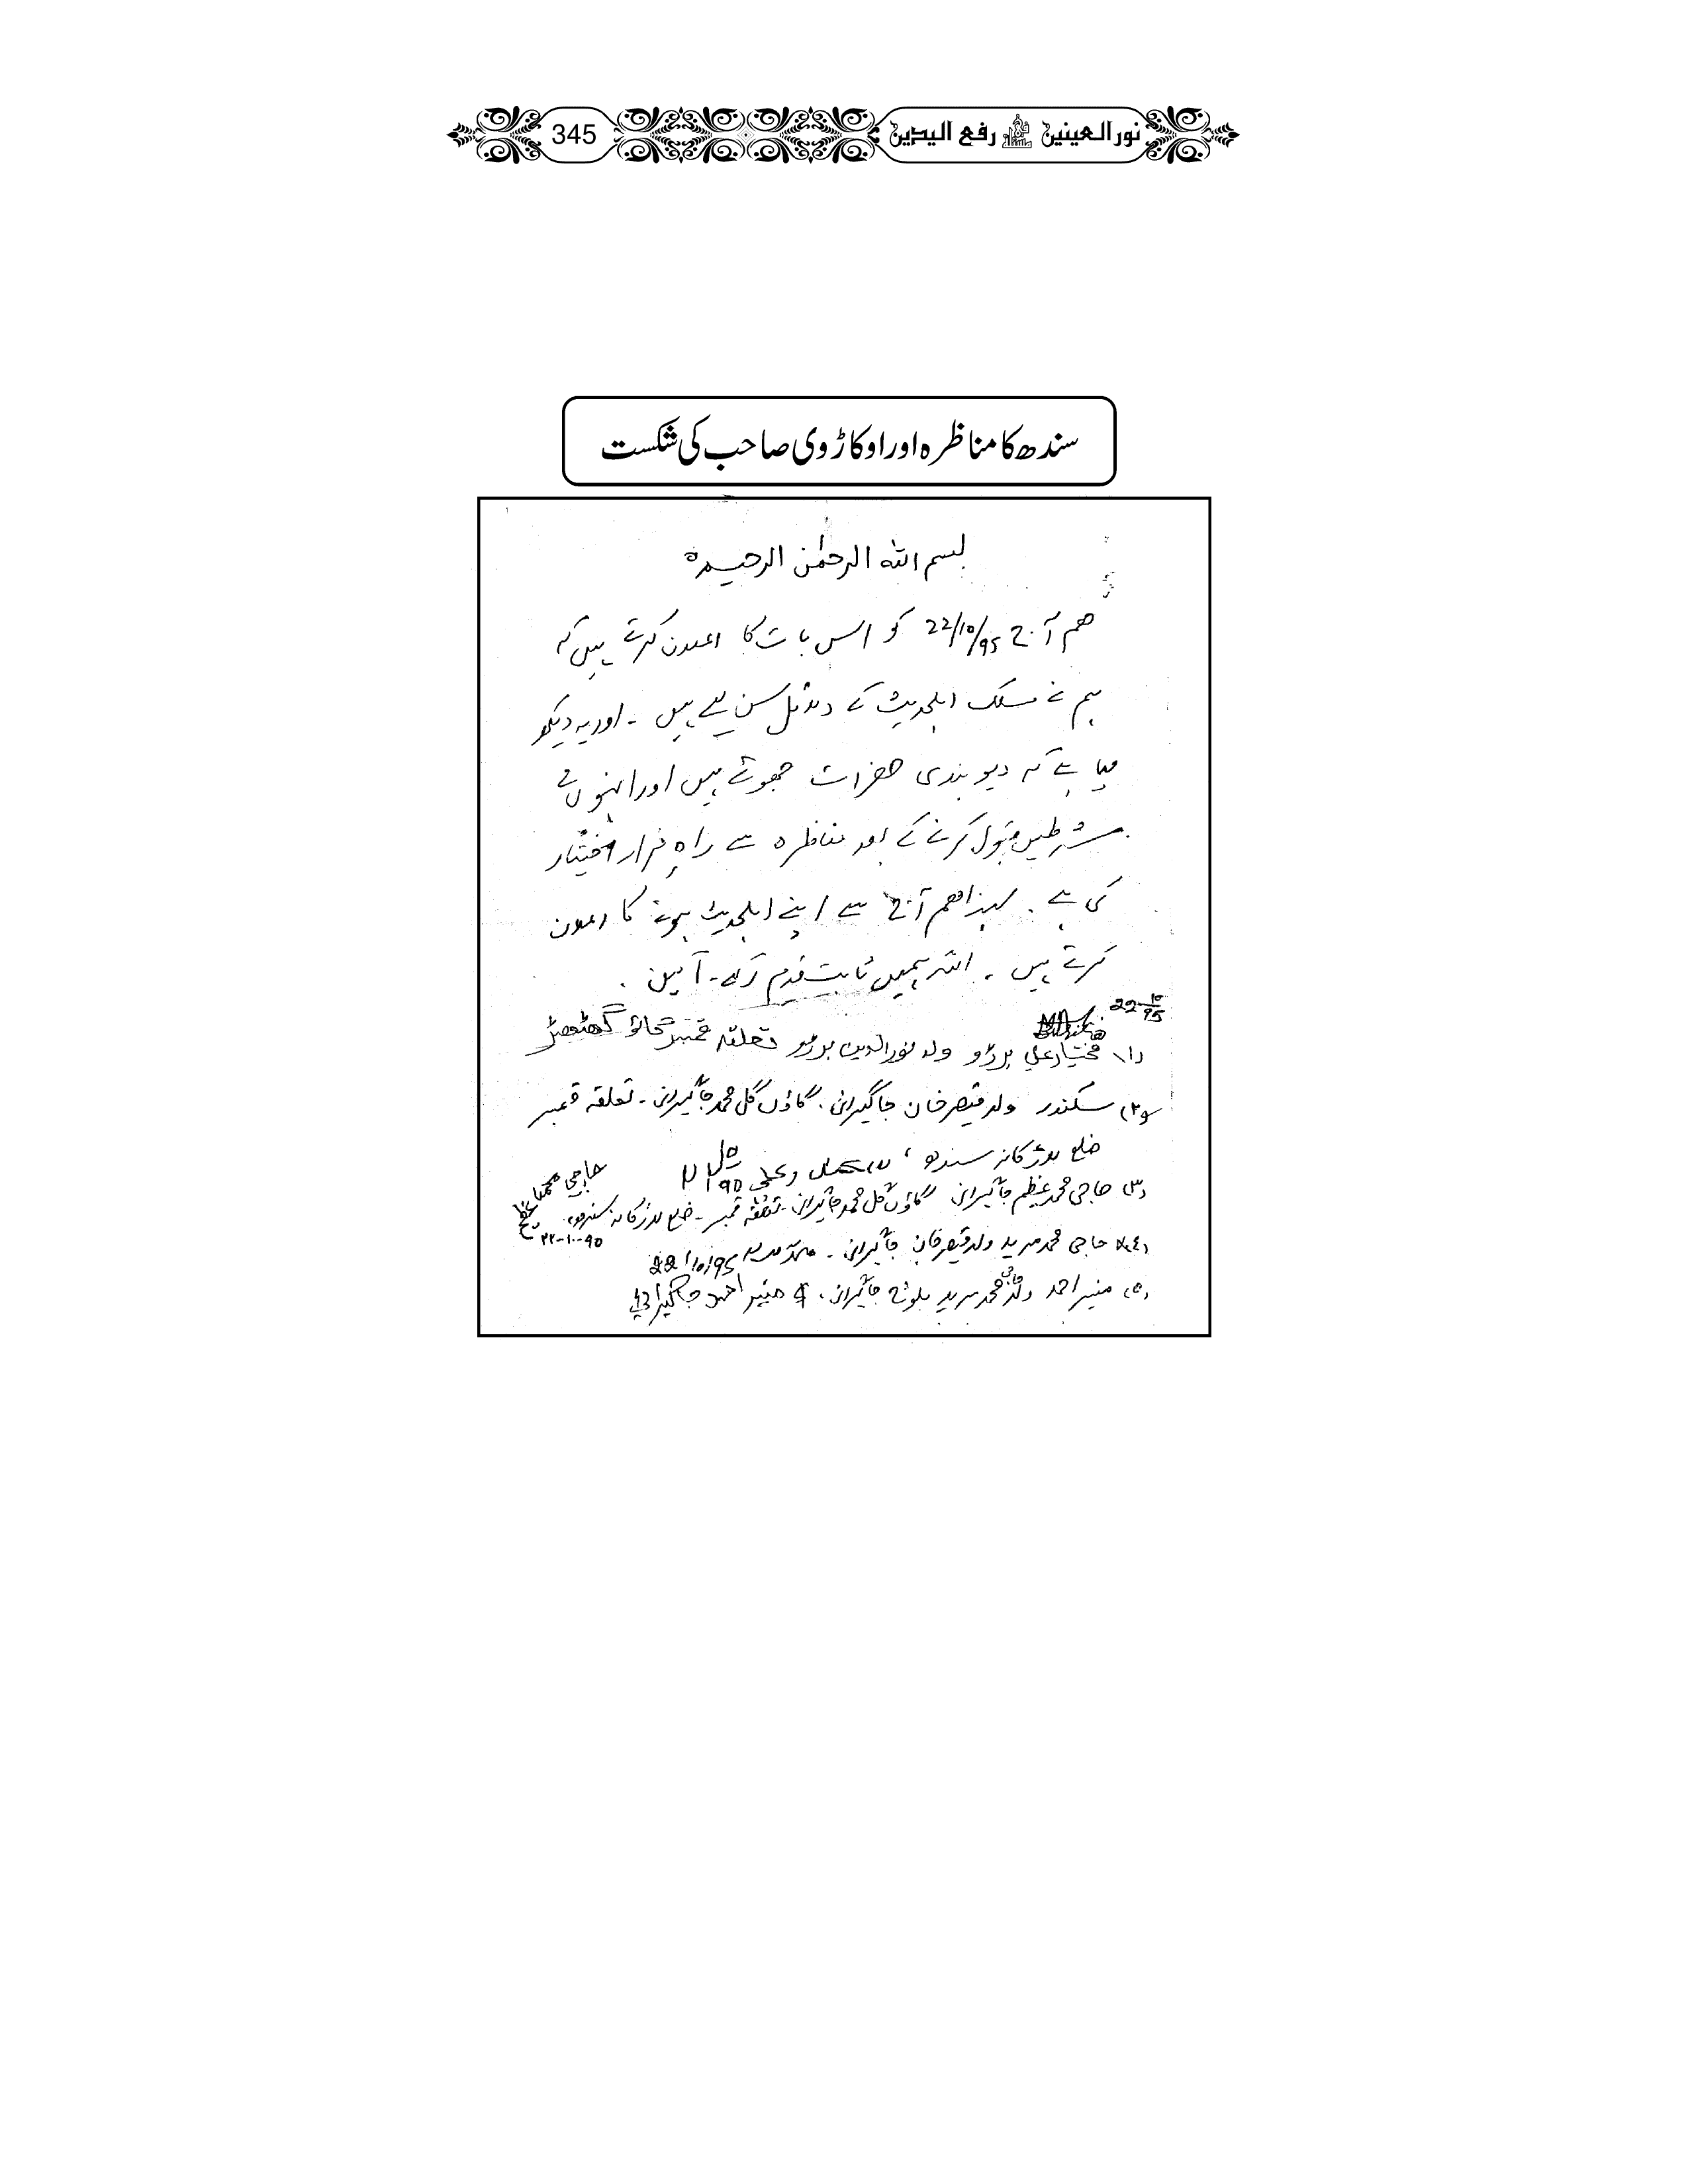 نور العینین فی رفع الیدین
345
سندھ کا مناظرہ اور اوکاڑوی صاحب کی شکست
بسم اللہ الرحمٰن الرحیم ہ
ھم آج 22/10/95 کو اس بات کا اعلان کرتے ہیں کہ
ہم نے مسلک اہلحدیث کے دلائل سن لیے ہیں ۔ اور یہ دیکھ
لیا ہے کہ دیوبندی حضرات جھوٹے ہیں اور انہوں نے
شرطیں قبول کرنے کے بعد مناظرہ سے راہِ فرار اختیار
کی ہے ۔ لہذا ھم آج سے اپنے اہلحدیث ہونے کا اعلان
کرتے ہیں ۔ اللہ ہمیں ثابت قدم رکھے ۔ آمین ۔
22-10-95
(۱) مختیار علي ٻرڙو ولد نورالدین ٻرڙو تعلقہ قمبر ڳائو
(۲) سکندر ولد قیصر خان جاگیرانی ۔ گاؤں گل محمد جاگیرانی ۔ تعلقہ قمبر
ضلع لاڑکانہ سندھ ،
(۳) حاجی محمد عظیم جاگیرانی گاؤں گل محمد جاگیرانی ۔ تعلقہ قمبر ۔ ضلع لاڑکانہ سندھ
حاجي محمد عظیم
۲۲-۱۰-۹۵
(٤) حاجی محمد مرید ولد قیصر خان جاگیرانی ۔ 22/10/95
(۵) منیر احمد ولد حاجی محمد مرید بلوچ جاگیرانی ، منیر احمد جاگیراني